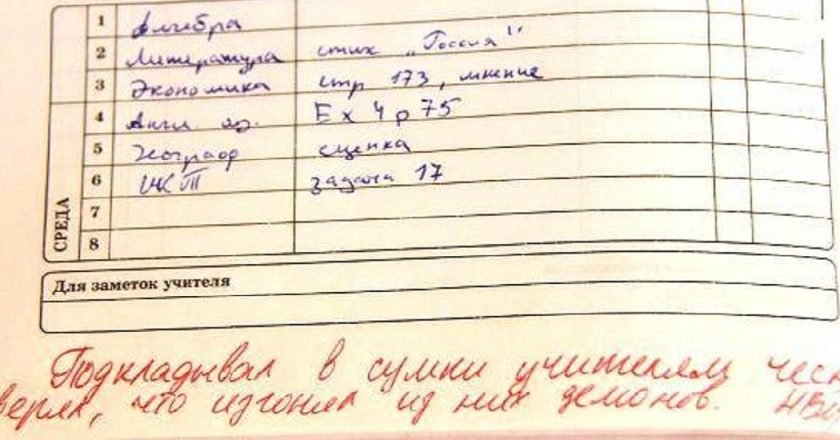 1 Алгебра
2 Литература стих „Россия"
3 Экономика стр 173, мнение
4 Англ. яз. Ex 4 p 75
5 Географ сценка
6 задача 17
7
8
СРЕДА
Для заметок учителя
Подкладывал в сумки учителям чесн
верял, что изгонял из них демонов.